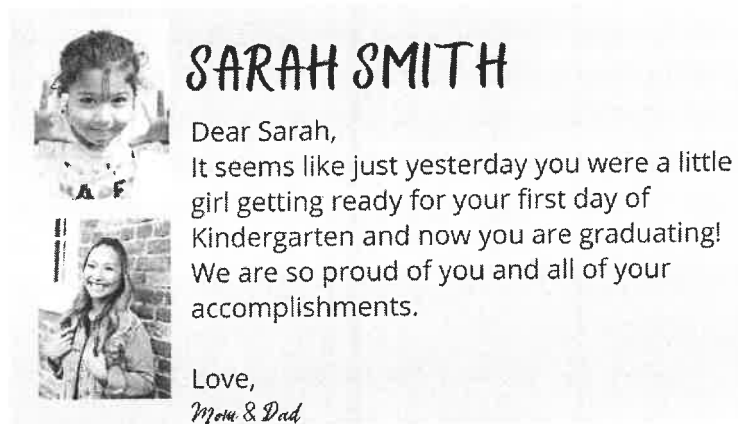 SARAH SMITH
Dear Sarah,
It seems like just yesterday you were a little
girl getting ready for your first day of
Kindergarten and now you are graduating!
We are so proud of you and all of your
accomplishments.
Love,
Mom & Dad